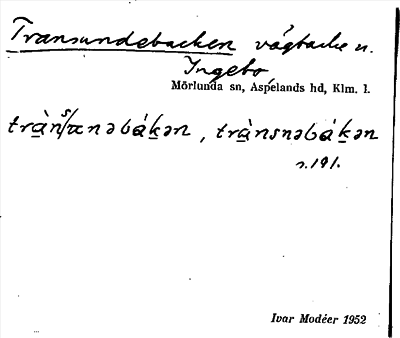 Transundebacken vägbacke n.
Ingebo,
Mörlunda sn, Aspelands hd, Klm. l.
tràns/unəbákən, trànsnəbákən
s. 191.
Ivar Modéer 1952